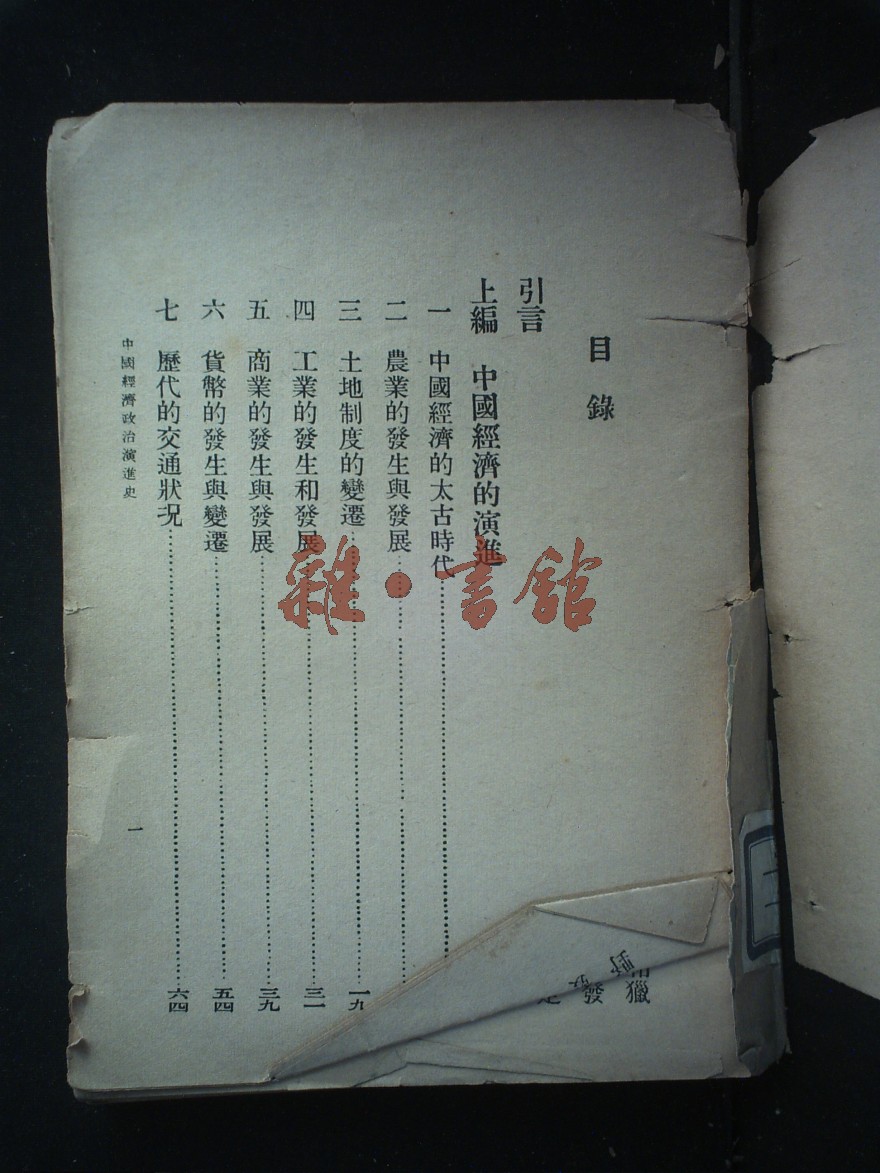 目錄
引言
上編 中國經濟的演進
一 中國經濟的太古時代
二 農業的發生與發展
三 土地制度的變遷 一九
四 工業的發生和發展 三一
五 商業的發生與發展 三九
六 貨幣的發生與變遷 五四
七 歷代的交通狀況 六四
中國經濟政治演進史
一
獵
發
野
雜·書館